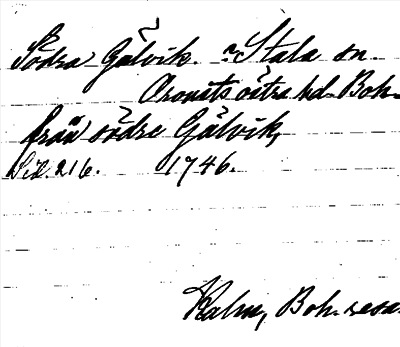 Södra Gålvik. Stala sn.
Orousts östra hd. Boh.
från södre Gålvik,
Sid. 216. 1746.
Kalm, Boh. resa.